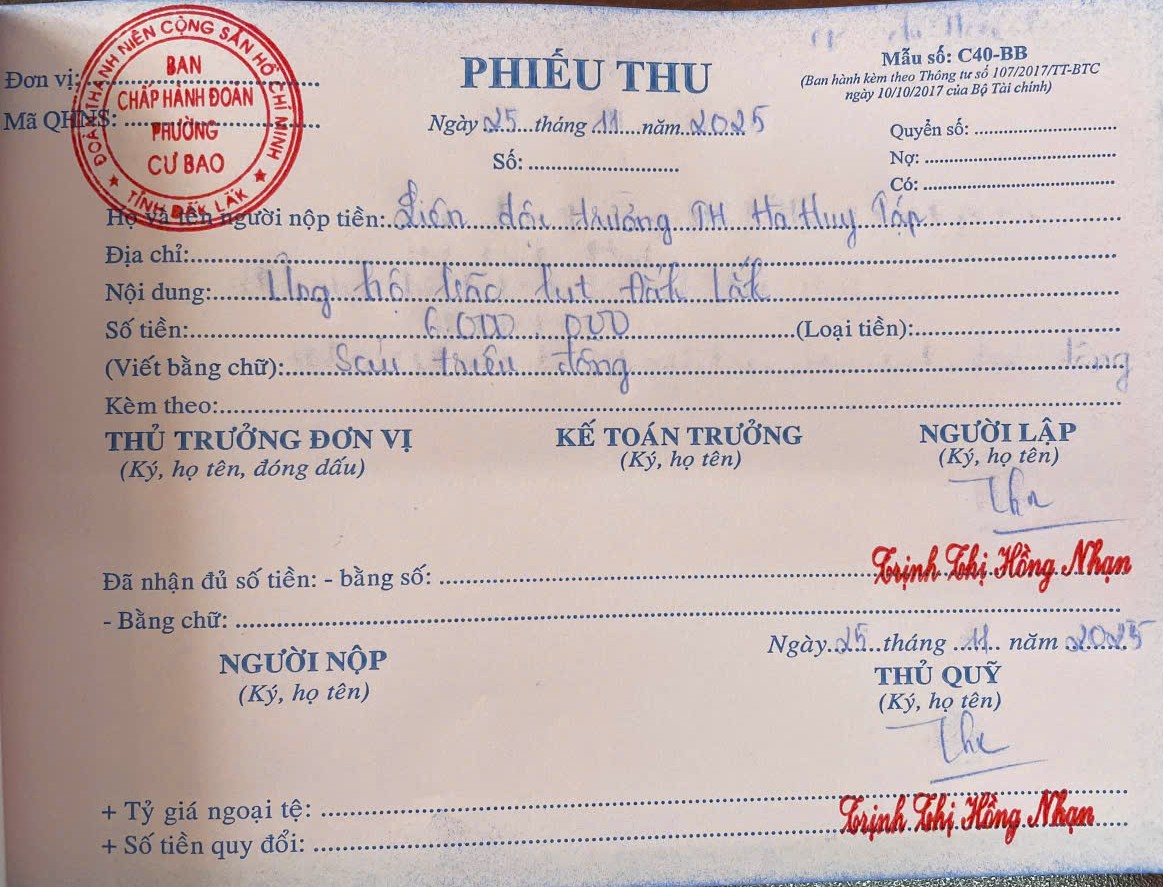 ĐOÀN THANH NIÊN CỘNG SẢN HỒ CHÍ MINH
BAN
CHẤP HÀNH ĐOÀN
PHƯỜNG
CƯ BAO
TỈNH ĐẮK LẮK
Đơn vị:
Mã QHNS:
PHIẾU THU
Ngày 25 tháng 11 năm 2025
Số:
Mẫu số: C40-BB
(Ban hành kèm theo Thông tư số 107/2017/TT-BTC
ngày 10/10/2017 của Bộ Tài chính)
Quyển số:
Nợ:
Có:
Họ và tên người nộp tiền: Liên đội trường TH Hà Huy Tập
Địa chỉ:
Nội dung: Ủng hộ bão lụt Đắk Lắk
Số tiền: 6.000.000 (Loại tiền):
(Viết bằng chữ): Sáu triệu đồng
Kèm theo:
THỦ TRƯỞNG ĐƠN VỊ
(Ký, họ tên, đóng dấu)
KẾ TOÁN TRƯỞNG
(Ký, họ tên)
NGƯỜI LẬP
(Ký, họ tên)
Trịnh Thị Hồng Nhạn
Đã nhận đủ số tiền: - bằng số:
- Bằng chữ:
Ngày 25 tháng 11 năm 2025
NGƯỜI NỘP
(Ký, họ tên)
THỦ QUỸ
(Ký, họ tên)
Trịnh Thị Hồng Nhạn
+ Tỷ giá ngoại tệ:
+ Số tiền quy đổi: